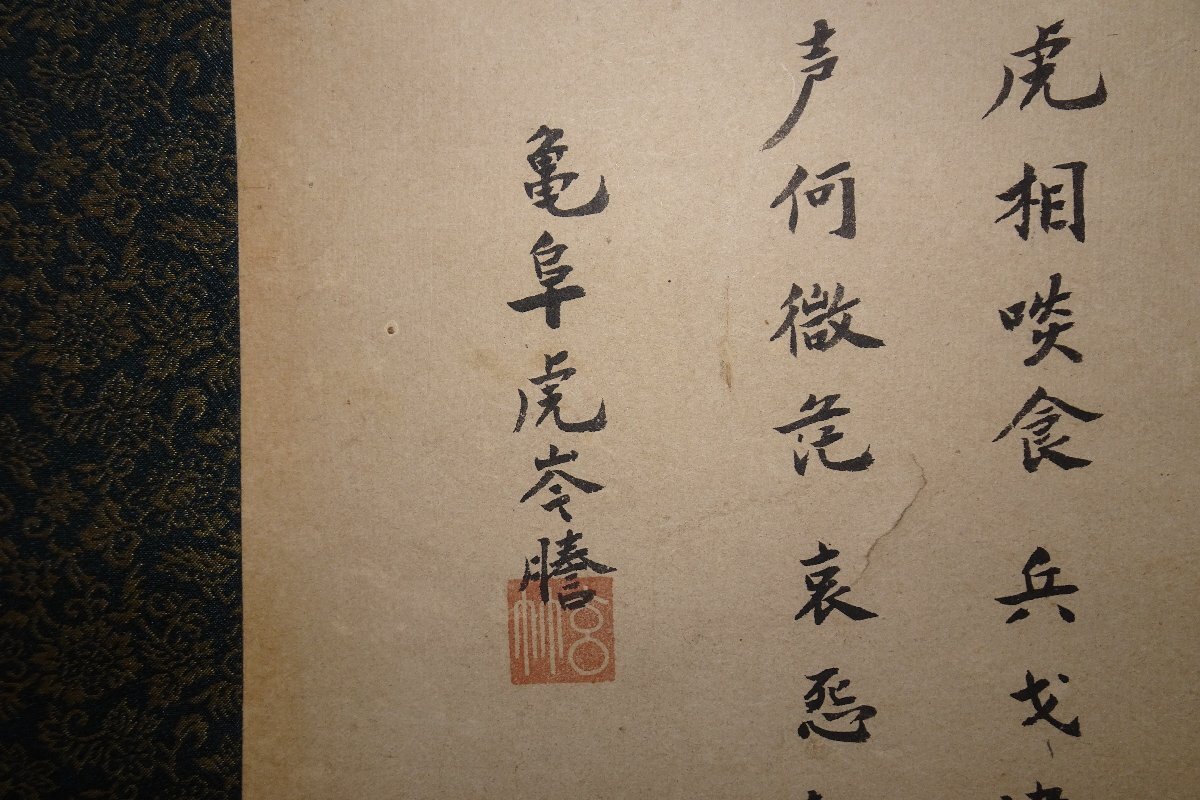 虎相啖食兵戈
声何微茫哀怨
亀阜虎岑謄